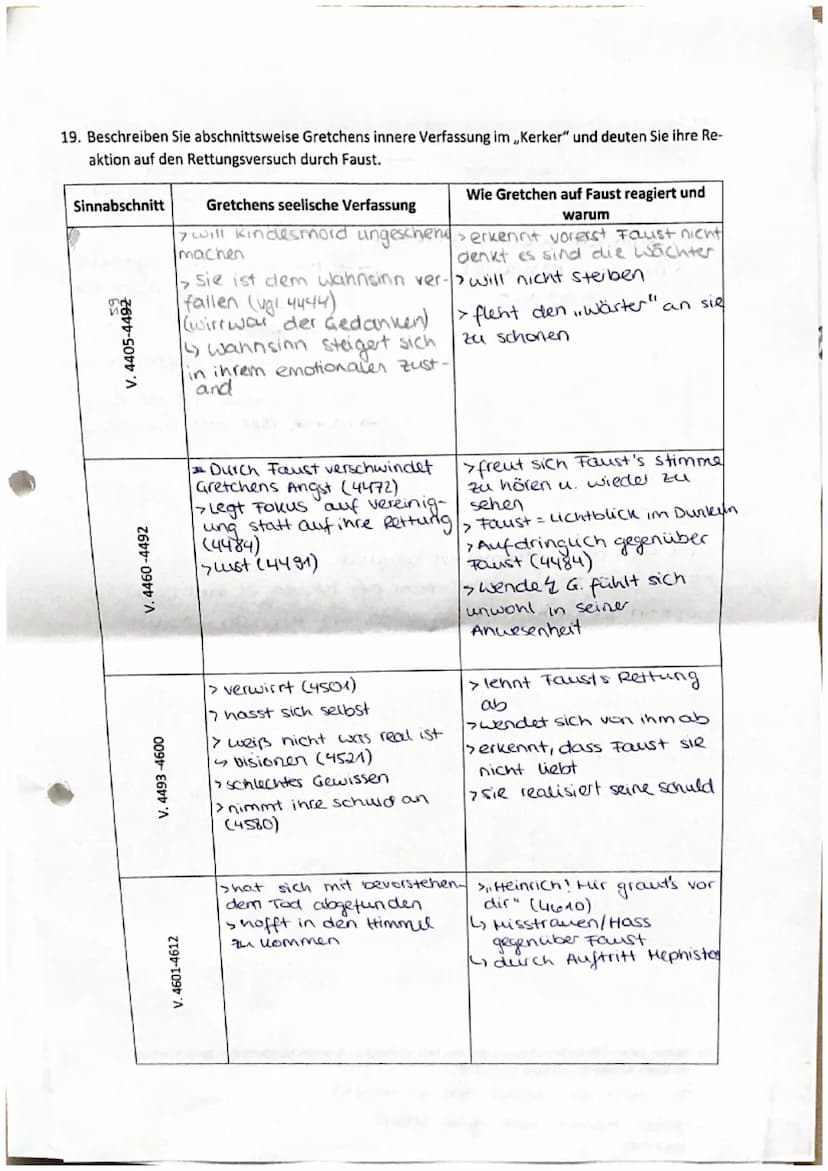 19. Beschreiben Sie abschnittsweise Gretchens innere Verfassung im „Kerker" und deuten Sie ihre Re-
aktion auf den Rettungsversuch durch Faust.
Sinnabschnitt
Gretchens seelische Verfassung
Wie Gretchen auf Faust reagiert und
warum
V. 4405-4492
59
> will Kindesmord ungeschehen
machen
> Sie ist dem Wahnsinn ver-
fallen (vgl. 4444)
(wirrwar der Gedanken)
↳ Wahnsinn steigert sich
in ihrem emotionalen Zust-
and
> erkennt vorerst Faust nicht
denkt es sind die Wächter
> will nicht sterben
> fleht den „Wärter" an sie
zu schonen
V. 4460-4492
Durch Faust verschwindet
Gretchens Angst (4472)
> Legt Fokus auf vereinig-
ung statt auf ihre Rettung
(4484)
> Lust (4491)
> freut sich Faust's Stimme
zu hören u. wieder zu
sehen
> Faust = Lichtblick im Dunkeln
> Aufdringlich gegenüber
Faust (4484)
> wende↯ G. fühlt sich
unwohl in seiner
Anwesenheit
V. 4493-4600
> verwirrt (4501)
> hasst sich selbst
> weiß nicht was real ist
↳ Visionen (4521)
> schlechtes Gewissen
> nimmt ihre schuld an
(4580)
> lehnt Fausts Rettung
ab
> wendet sich von ihm ab
> erkennt, dass Faust sie
nicht liebt
> sie realisiert seine schuld
V. 4601-4612
> hat sich mit bevorstehen-
dem Tod abgefunden
> hofft in den Himmel
zu kommen
> „Heinrich! Mir graut's vor
dir" (4610)
↳ Misstrauen/Hass
gegenüber Faust
↳ durch Auftritt Mephistos